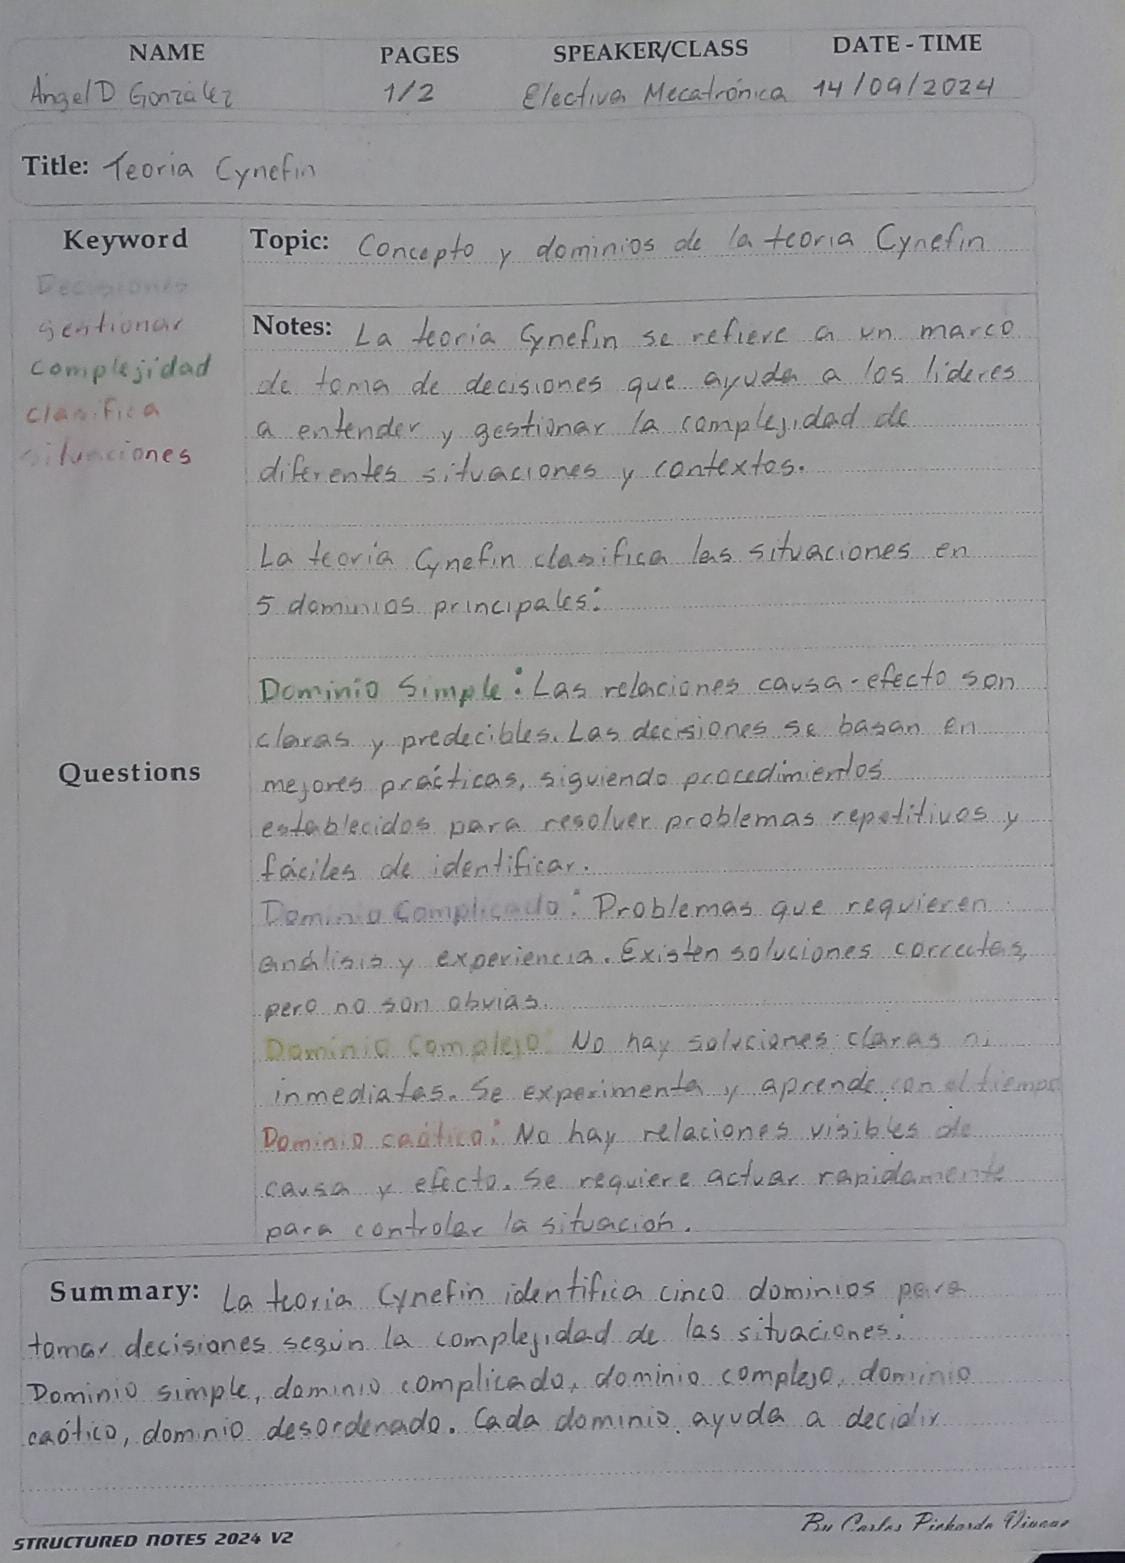 NAME PAGES SPEAKER/CLASS DATE - TIME
Ángel D González 1/2 Electiva Mecatrónica 14/09/2024
Title: Teoria Cynefin
Keyword
Decisiones
gestionar
complejidad
clasifica
situaciones
Questions
Topic: Concepto y dominios de la teoria Cynefin
Notes: La teoría Cynefin se refiere a un marco
de toma de decisiones que ayuda a los líderes
a entender y gestionar la complejidad de
diferentes situaciones y contextos.
La teoría Cynefin clasifica las situaciones en
5 dominios principales:
Dominio Simple: Las relaciones causa-efecto son
claras y predecibles. Las decisiones se basan en
mejores prácticas, siguiendo procedimientos
establecidos para resolver problemas repetitivos y
fáciles de identificar.
Dominio Complicado: Problemas que requieren
análisis y experiencia. Existen soluciones correctas,
pero no son obvias.
Dominio Complejo: No hay soluciones claras ni
inmediatas. Se experimenta y aprende con el tiempo
Dominio caótico: No hay relaciones visibles de
causa y efecto. Se requiere actuar rapidamente
para controlar la situación.
Summary: La teoria Cynefin identifica cinco dominios para
tomar decisiones según la complejidad de las situaciones:
Dominio simple, dominio complicado, dominio complejo, dominio
caótico, dominio desordenado. Cada dominio ayuda a decidir
STRUCTURED NOTES 2024 V2
By Carlos Pichardo Viuque